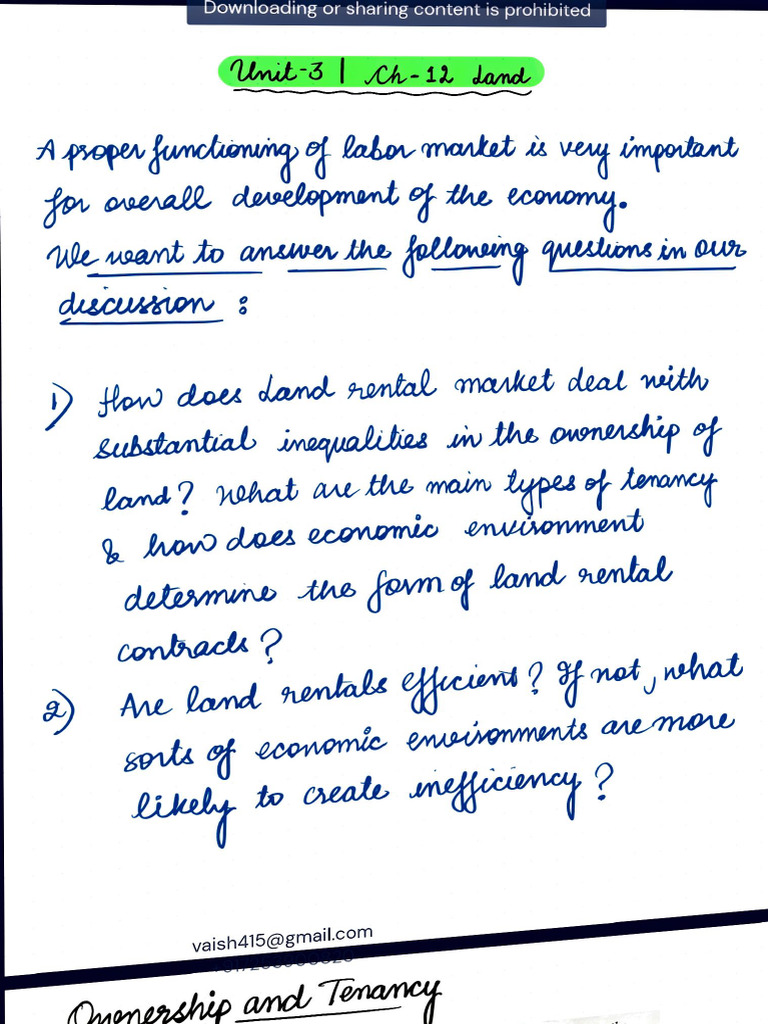 Downloading or sharing content is prohibited
Unit-3 | Ch-12 Land
A proper functioning of labor market is very important
for overall development of the economy.
We want to answer the following questions in our
discussion :
1) How does Land rental market deal with
substantial inequalities in the ownership of
land? What are the main types of tenancy
& how does economic environment
determine the form of land rental
contracts?
2) Are land rentals efficient? If not, what
sorts of economic environments are more
likely to create inefficiency?
vaish415@gmail.com
Ownership and Tenancy